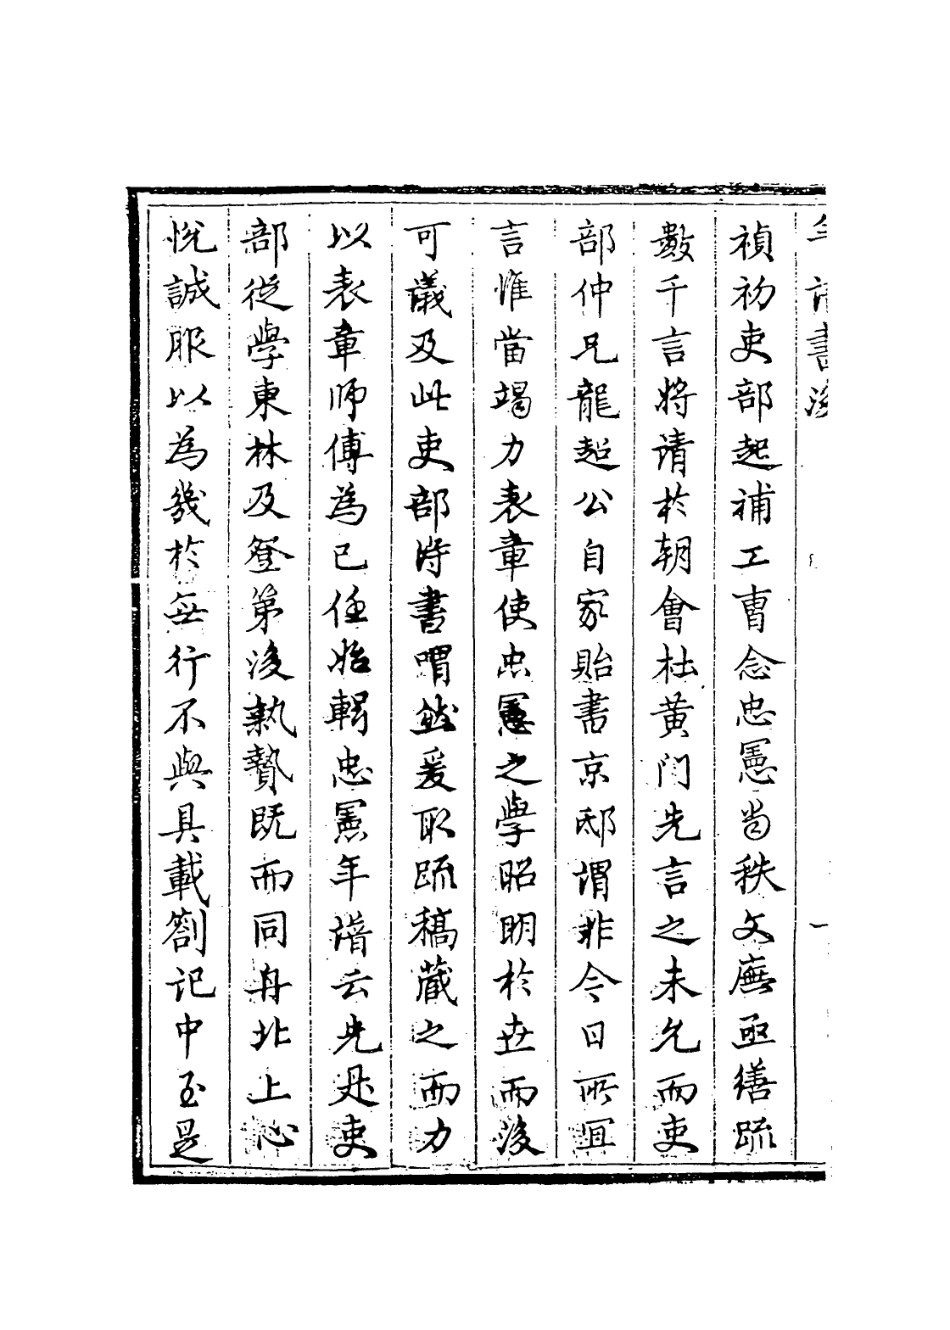 年譜書後
禎初吏部起補工曹念忠憲當秩文廡亟繕疏
數千言將請於朝會杜黃門先言之未允而吏
部仲兄龍超公自家貽書京邸謂非今日所宜
言惟當竭力表章使忠憲之學昭明於世而後
可議及此吏部得書喟然爰取疏稿蔵之而力
以表章師傅為己任始輯忠憲年譜云先是吏
部從學東林及登第後執贄既而同舟北上心
悅誠服以為幾於無行不與具載劄記中至是
一